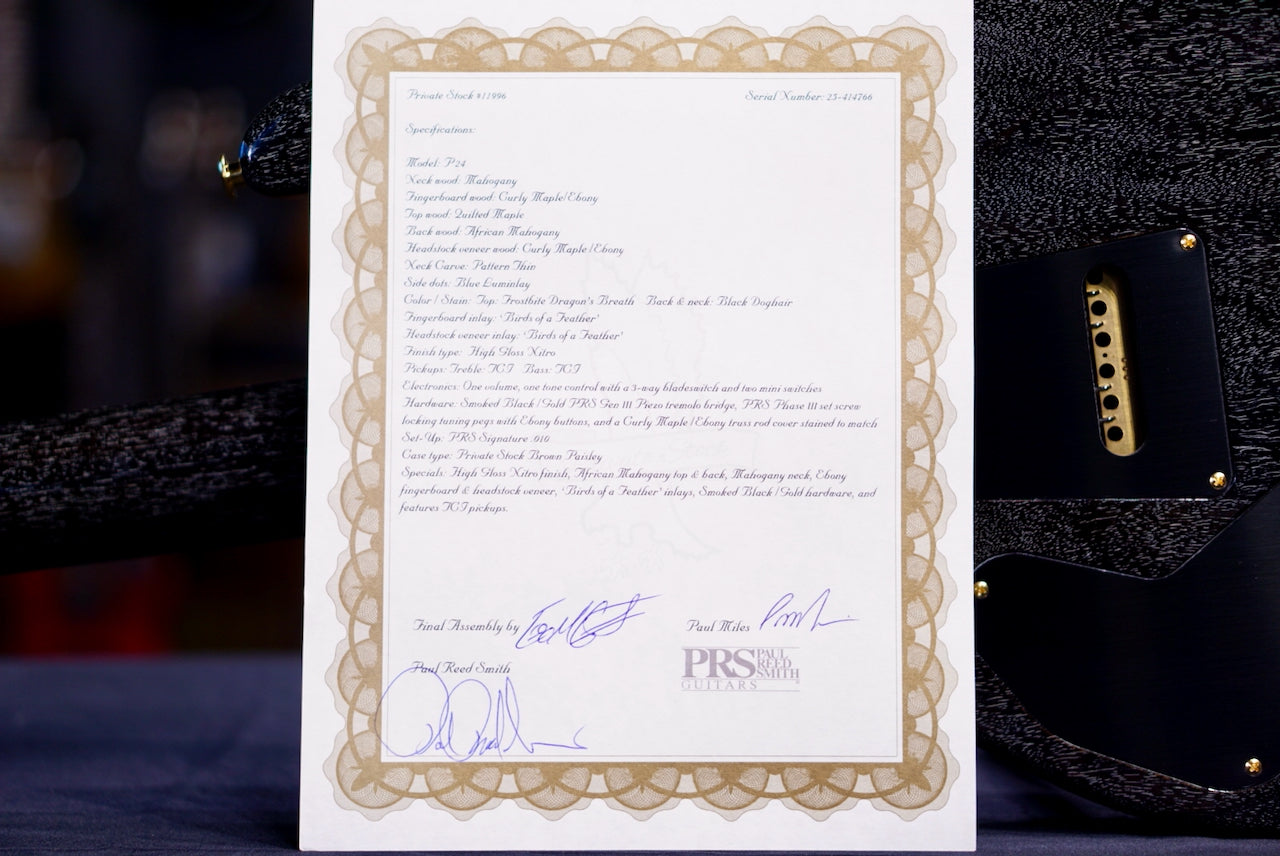 Private Stock #11996
Serial Number: 25-414766
Specifications:
Model: P24
Neck wood: Mahogany
Fingerboard wood: Curly Maple/Ebony
Top wood: Quilted Maple
Back wood: African Mahogany
Headstock veneer wood: Curly Maple/Ebony
Neck Carve: Pattern Thin
Side dots: Blue Luminlay
Color / Stain: Top: Frostbite Dragon's Breath Back & neck: Black Doghair
Fingerboard inlay: 'Birds of a Feather'
Headstock veneer inlay: 'Birds of a Feather'
Finish type: High Gloss Nitro
Pickups: Treble: TCI Bass: TCI
Electronics: One volume, one tone control with a 3-way bladeswitch and two mini switches
Hardware: Smoked Black/Gold PRS Gen III Piezo tremolo bridge, PRS Phase III set screw
locking tuning pegs with Ebony buttons, and a Curly Maple/Ebony truss rod cover stained to match
Set-Up: PRS Signature .010
Case type: Private Stock Brown Paisley
Specials: High Gloss Nitro finish, African Mahogany top & back, Mahogany neck, Ebony
fingerboard & headstock veneer, 'Birds of a Feather' inlays, Smoked Black/Gold hardware, and
features TCI pickups.
Final Assembly by
Paul Miles
Paul Reed Smith
PRS PAUL REED SMITH
GUITARS